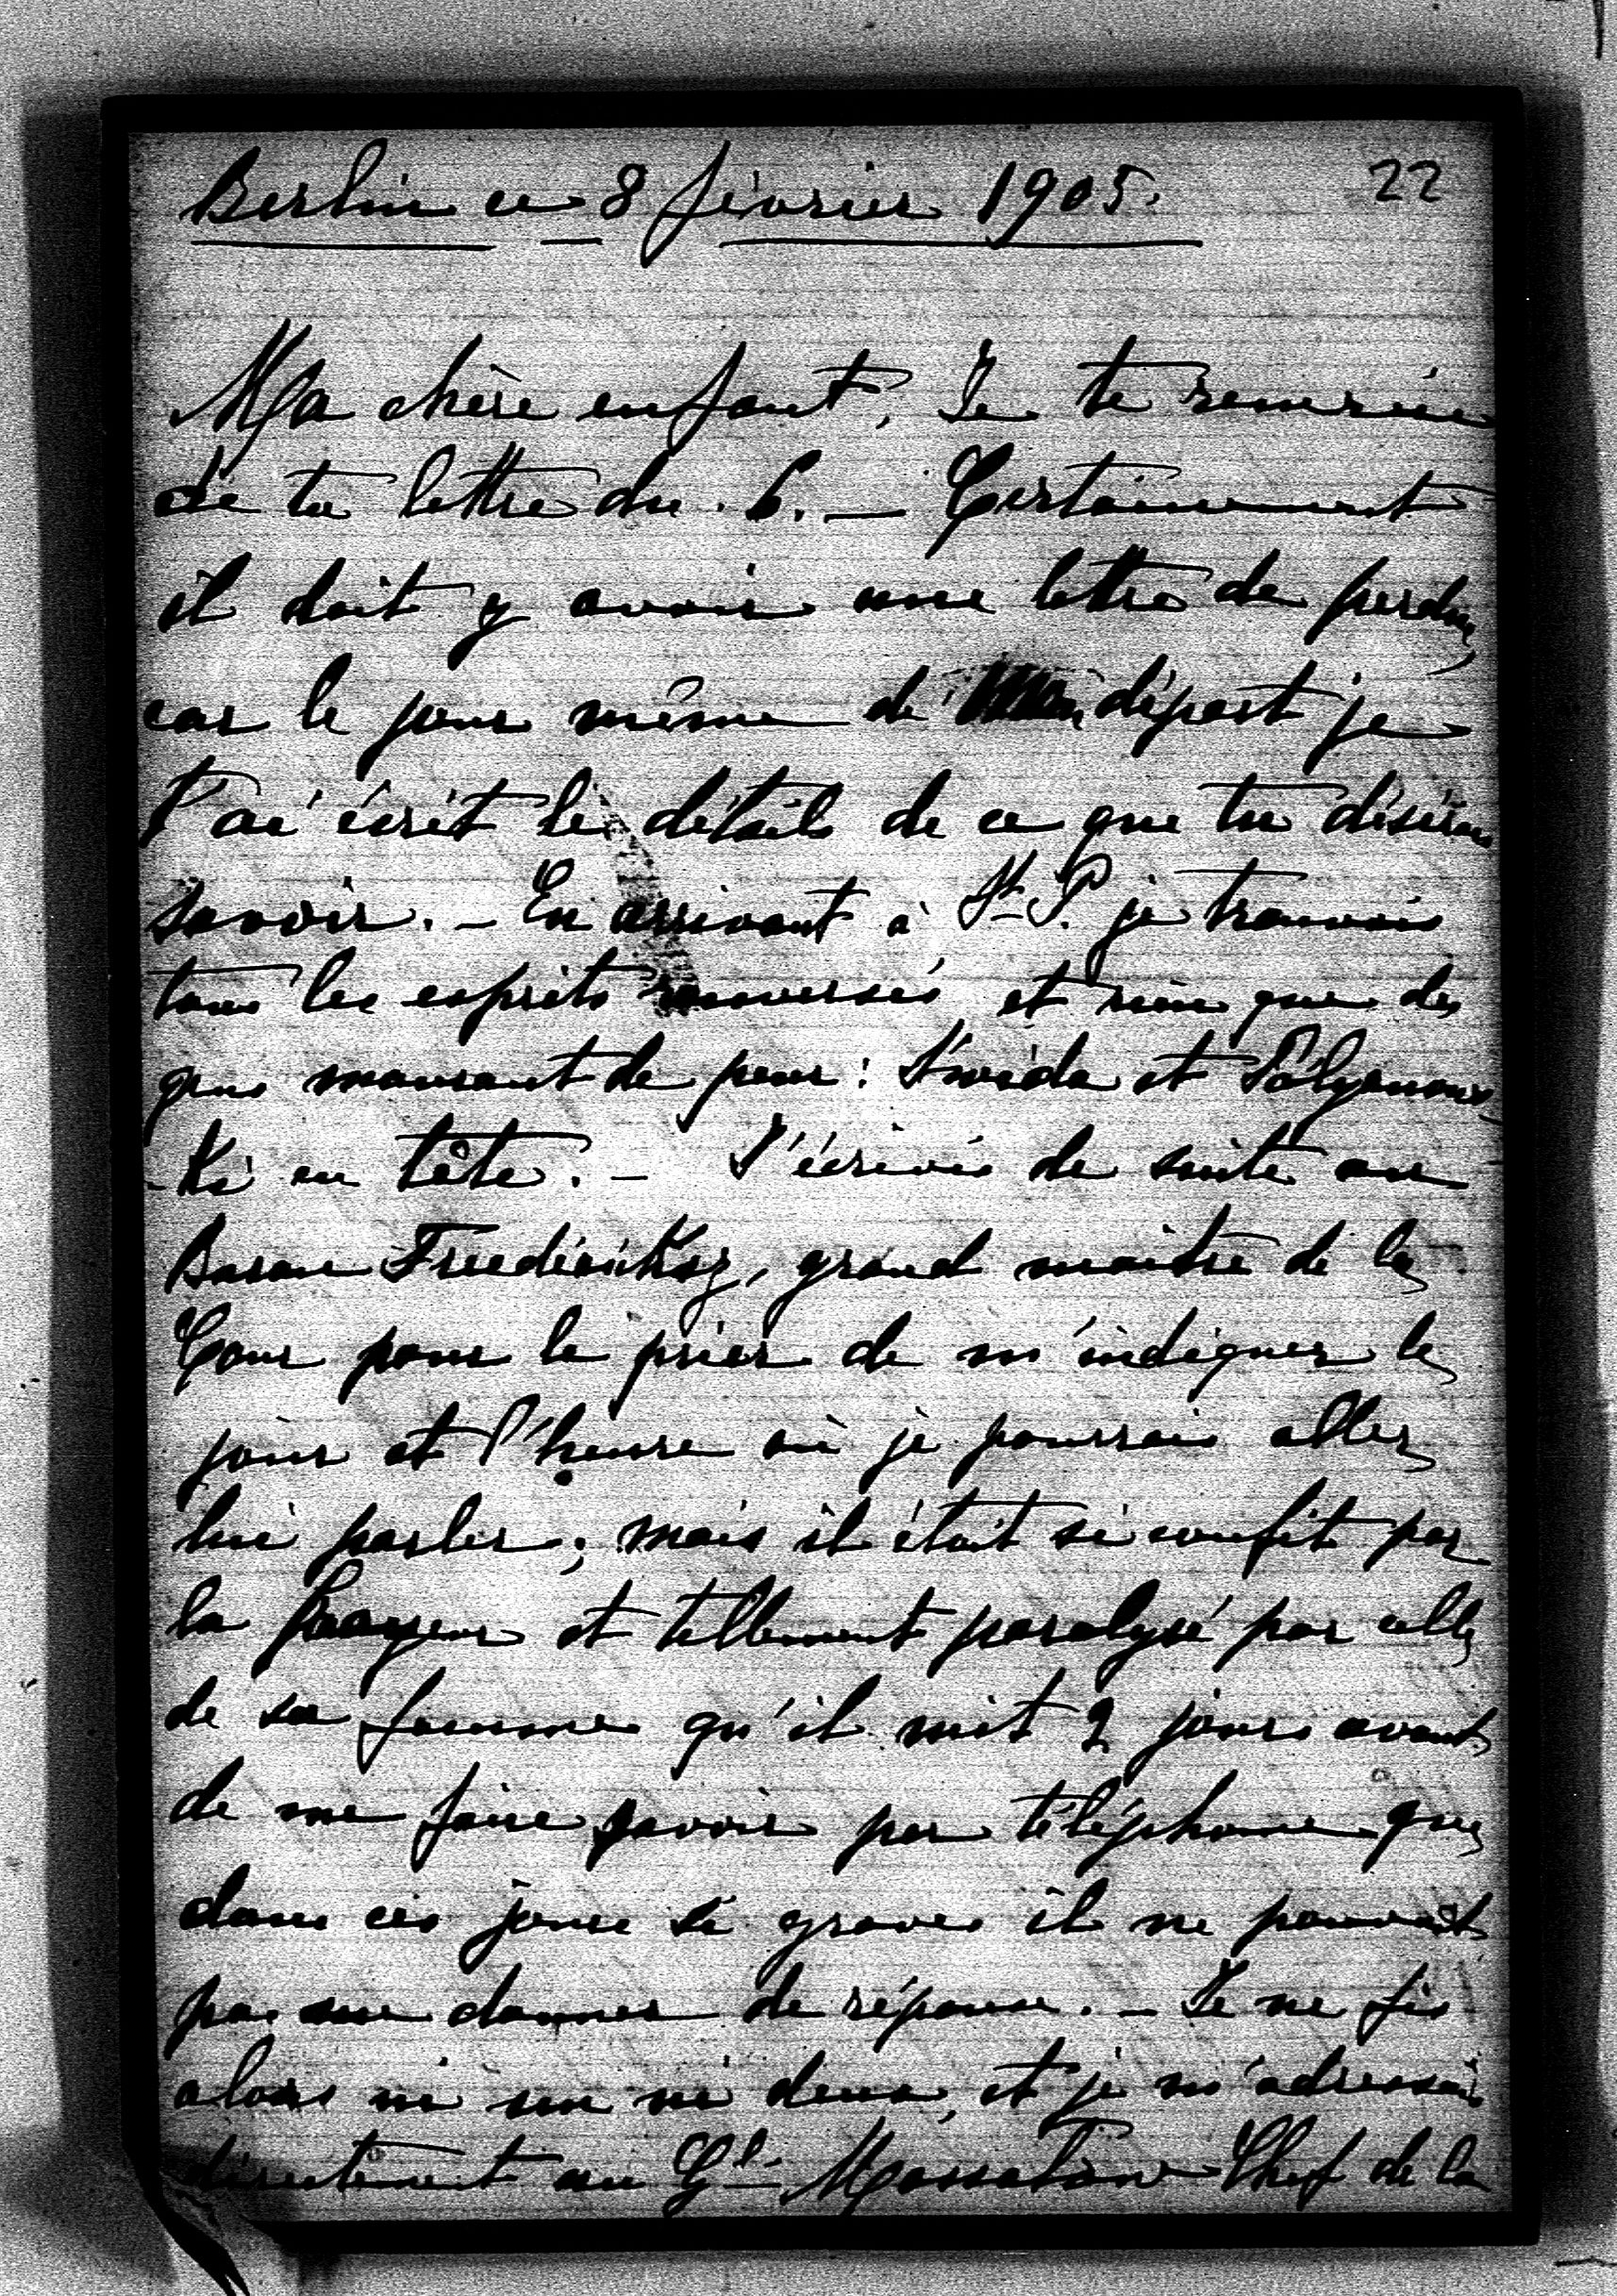 Berlin ce 8 février 1905. 22
Ma chère enfant, Je te remercie
de ta lettre du 6. — Certainement
il doit y avoir une lettre de perdue,
car le jour même de mon départ je
t'ai écrit le détail de ce que tu désirais
savoir. — En arrivant à St. P. je trouvais
tous les esprits renversés et rien que des
gens mourant de peur: et
-ki en tête. — J'écrivis de suite au
Baron Freedéricksz, grand maître de la
Cour pour le prier de m'indiquer le
jour et l'heure où je pourrais aller
lui parler; mais il était si confit par
la frayeur et tellement paralysé par celle
de sa femme qu'il mit 2 jours avant
de me faire savoir par téléphone que
dans ces jours si graves il ne pouvait
pas me donner de réponse. — Je ne fis
alors ni un ni deux, et je m'adressai
directement au Gl. Mossolow Chef de la